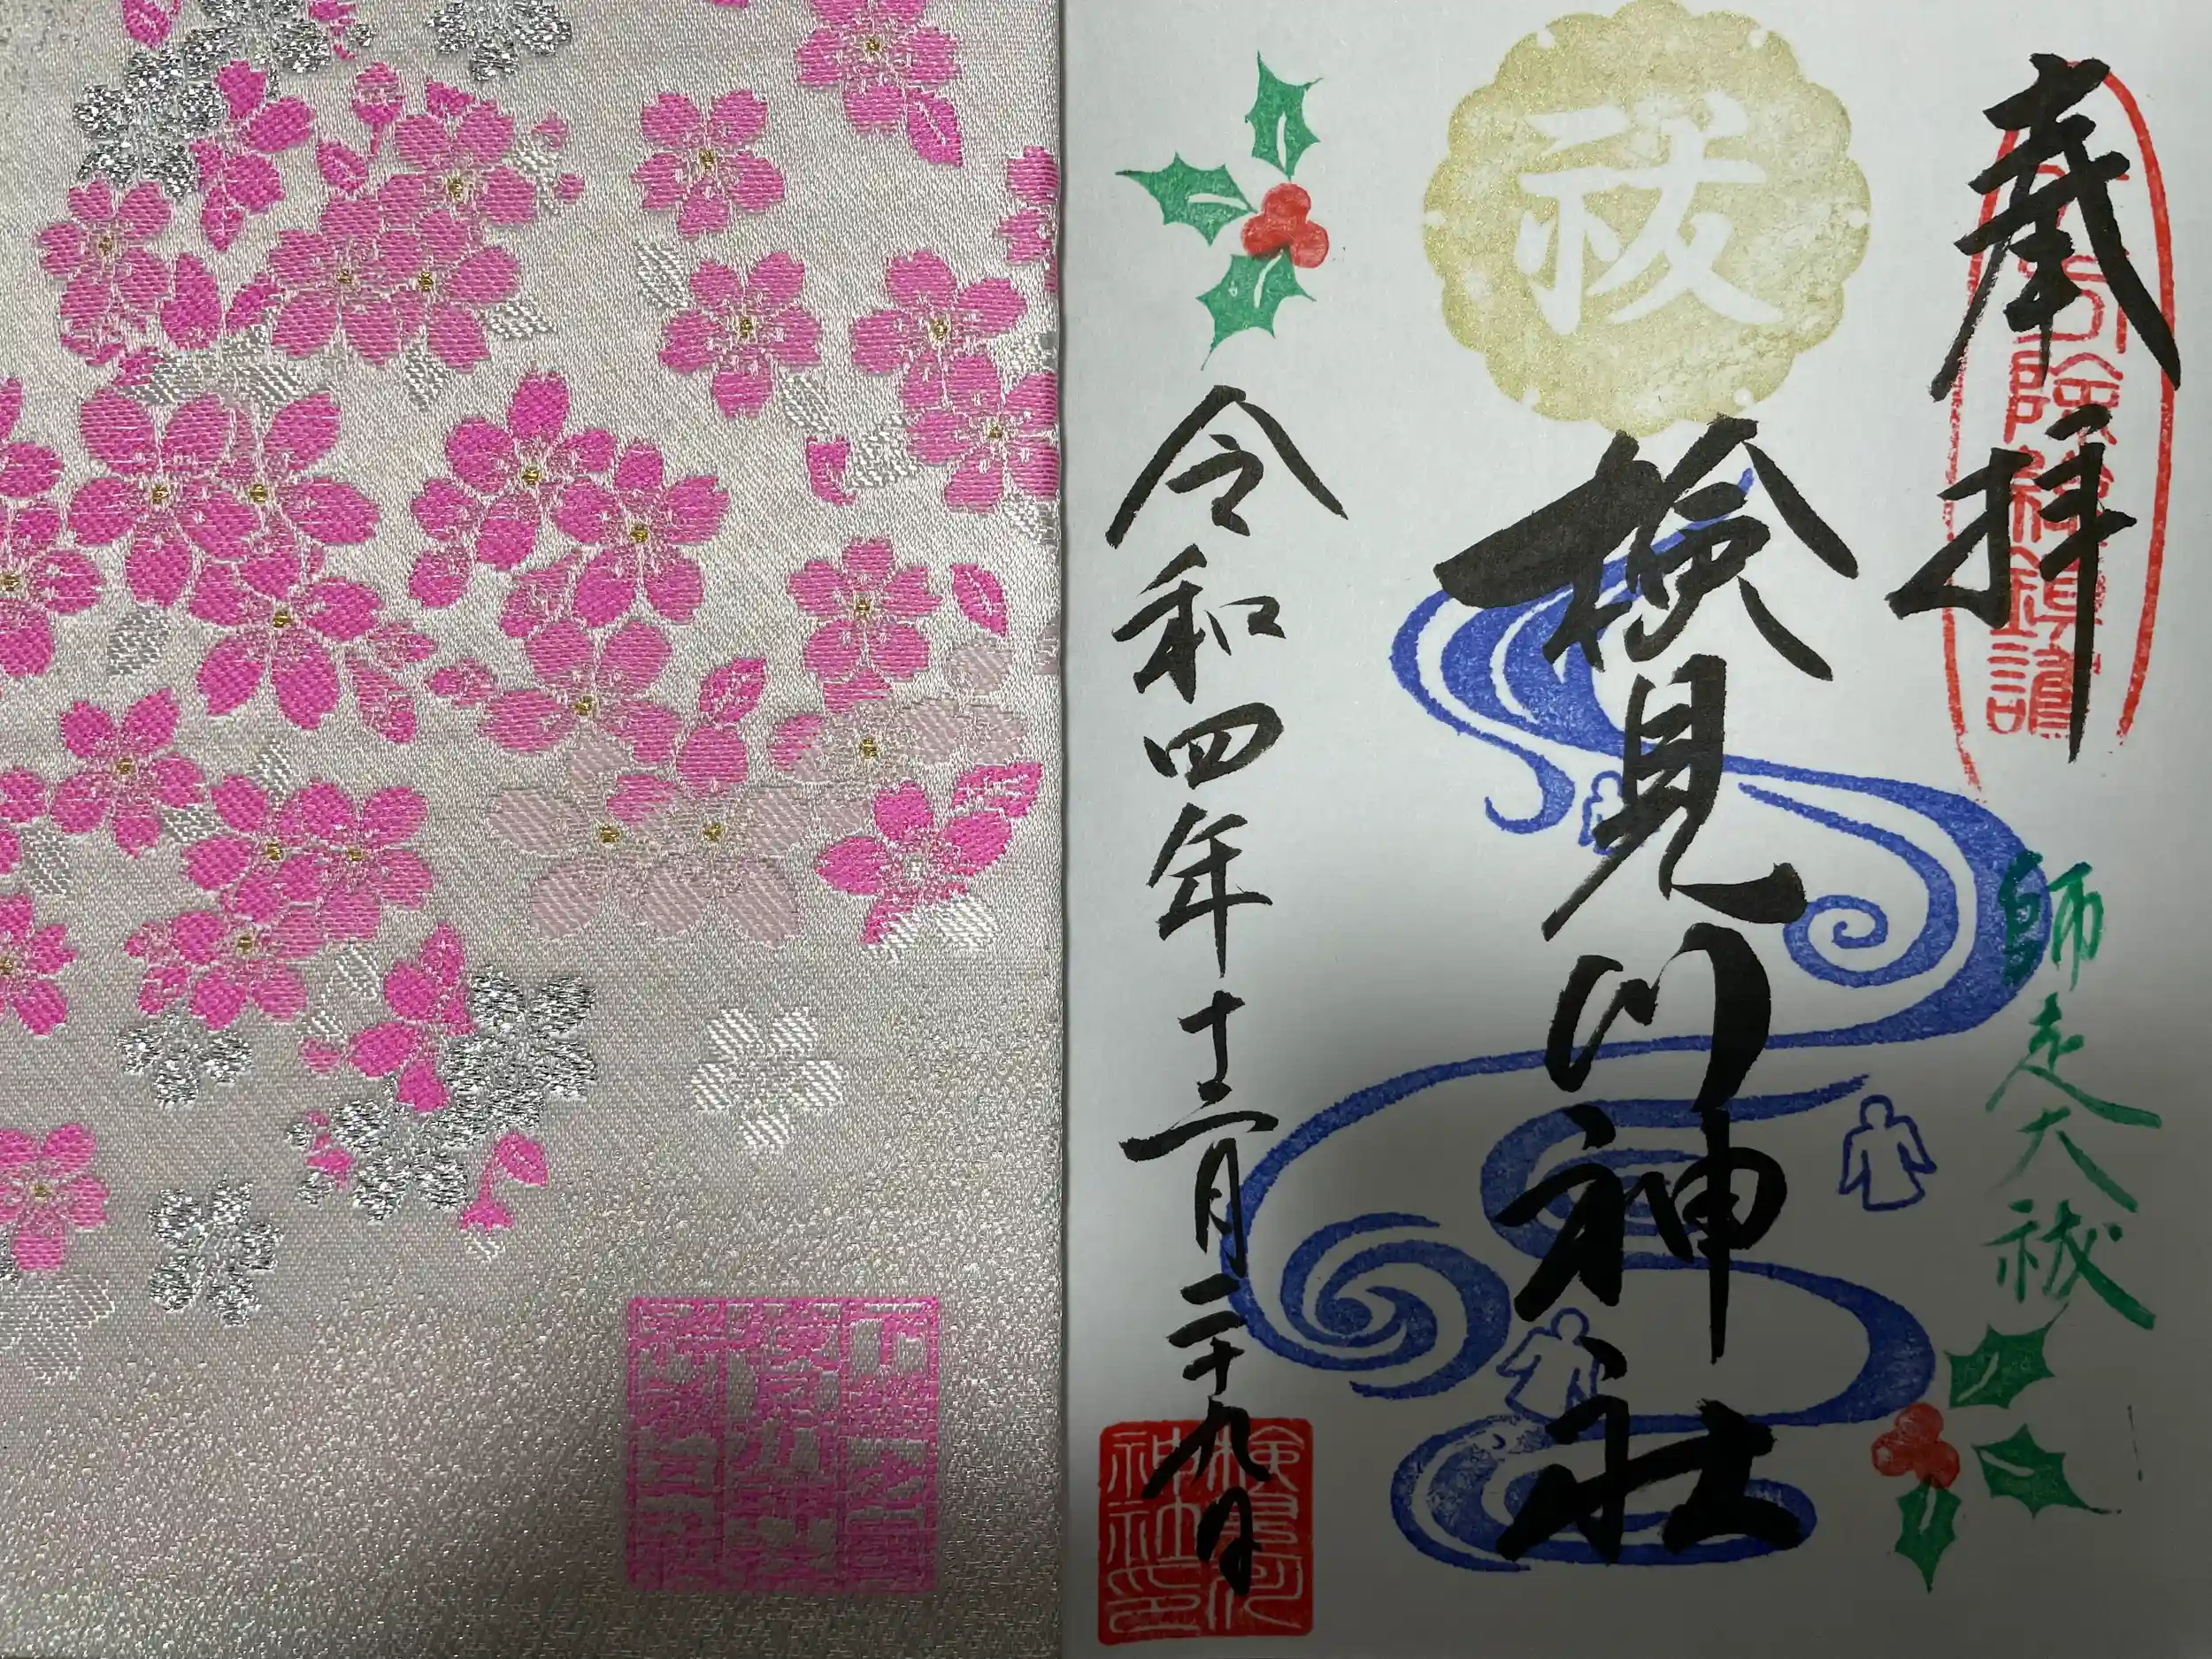 奉拝
師走大祓
祓
検見川神社
令和四年十二月二十九日
検見川
神社印